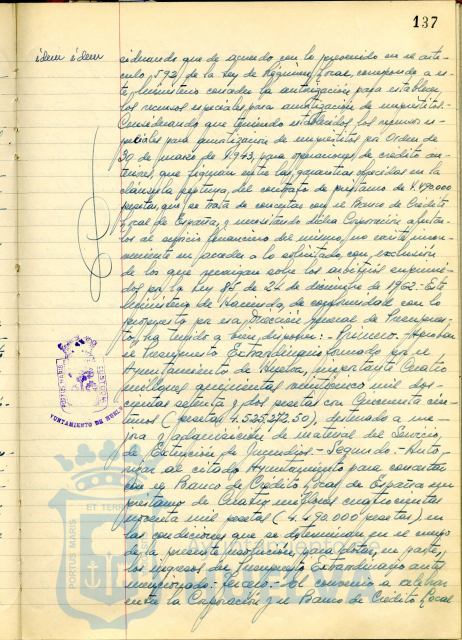 137
idem idem
siderando que de acuerdo con lo prevenido en el artí-
culo 592 de la Ley de Régimen Local, corresponde a es-
te Ministerio conceder la autorización para establecer
los recursos especiales para amortización de empréstitos.-
Considerando que teniendo establecidos los recursos es-
peciales para amortización de empréstitos por Orden de
30 de marzo de 1.943, para operaciones de crédito an-
teriores, que figuran entre las garantías ofrecidas en la
cláusula séptima, del contrato de préstamo de 4.490.000
pesetas, que se trata de concertar con el Banco de Crédito
Local de España, y necesitando dicha Corporación afectar-
los al servicio financiero del mismo, no existe incon-
veniente en acceder a lo solicitado, con exclusión
de los que recaigan sobre los arbitrios suprimi-
dos por la Ley 85 de 24 de diciembre de 1962.- Este
Ministerio de Hacienda, de conformidad con lo
propuesto por esa Dirección General de Presupues-
tos, ha tenido a bien disponer:- Primero.- Aprobar
el Presupuesto Extraordinario formado por el
Ayuntamiento de Huelva, importante Cuatro
millones quinientas veinticinco mil dos-
cientas setenta y dos pesetas con cincuenta cén-
timos (pesetas 4.525.272.50), destinado a me-
jora y adquisición de material del Servicio
de Extinción de Incendios.- Segundo.- Auto-
rizar al citado Ayuntamiento para concertar
con el Banco de Crédito Local de España un
préstamo de Cuatro millones cuatrocientas
noventa mil pesetas (4.490.000 pesetas), en
las condiciones que se determinan en el cuerpo
de la presente resolución, para dotar, en parte,
los ingresos del Presupuesto Extraordinario antes
mencionado.- Tercero.- El convenio a celebrar
entre la Corporación y el Banco de Crédito Local
AYUNTAMIENTO DE HUELVA
PORTUS MARIS
ET TERRAE